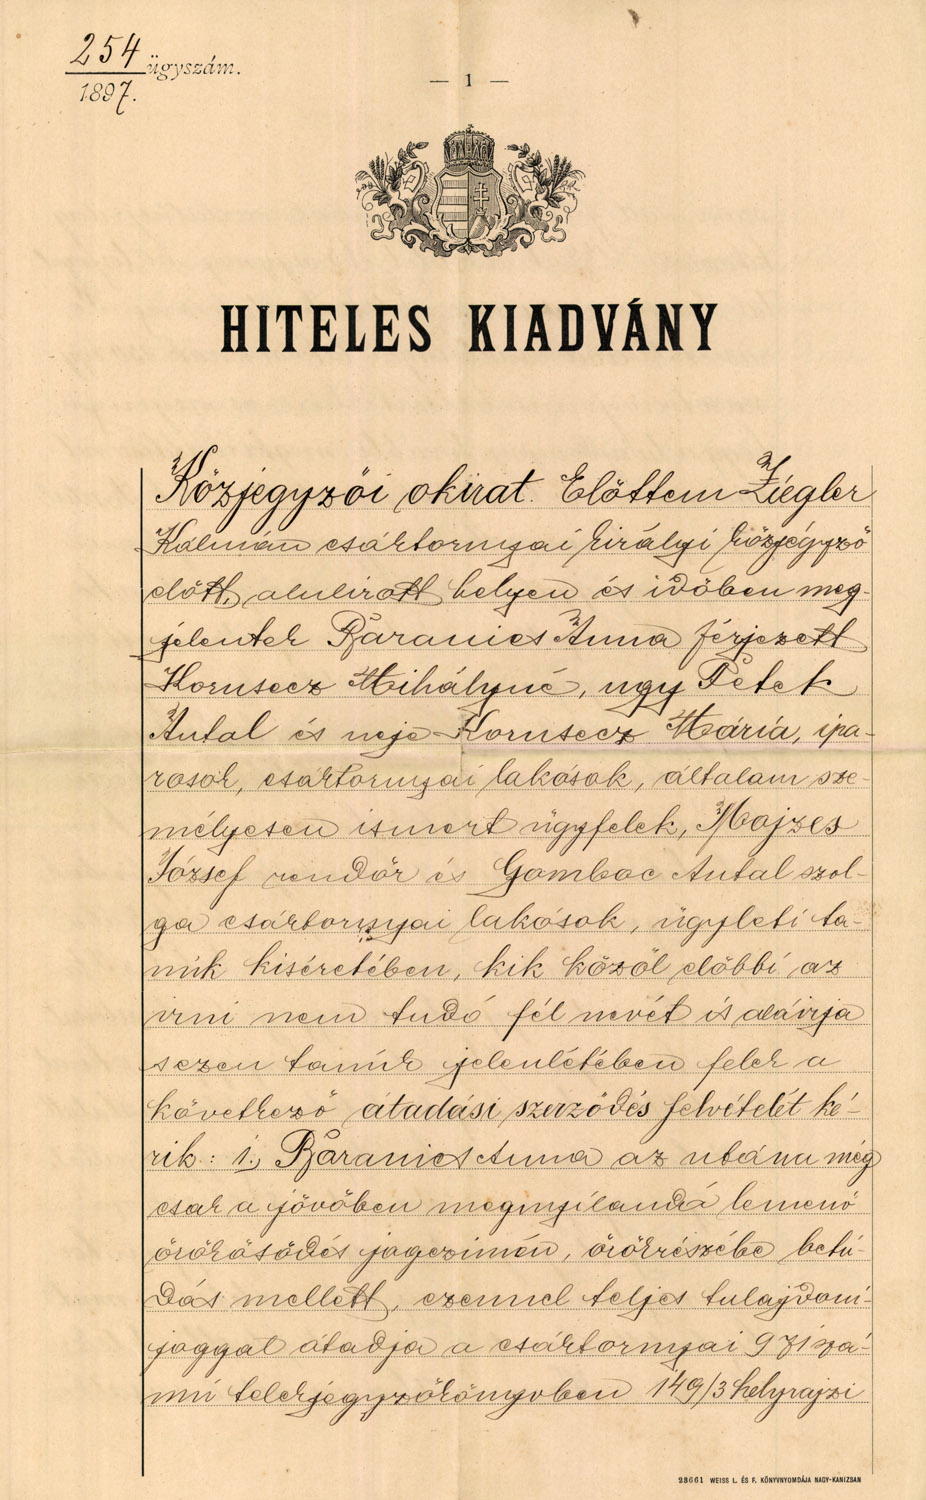 254 ügyszám.
1897.
— 1 —
HITELES KIADVÁNY
Közjegyzői okirat. Előttem Ziegler
Kálmán csáktornyai királyi közjegyző
előtt, alulirott helyen és időben meg-
jelentek Baranics Anna férjezett
Korusecz Mihályné, ugy Petek
Antal és neje Korusecz Mária, ipa-
rosok, csáktornyai lakósok, általam sze-
mélyesen ismert ügyfelek, Mojzes
József rendőr és Gomboc Antal szol-
ga csáktornyai lakósok, ügyleti ta-
núk kiséretében, kik közöl előbbi az
irni nem tudó fél nevét is aláirja
s ezen tanúk jelenlétében felek a
következő átadási szerződés felvételét ké-
rik: 1., Baranics Anna az utána még
csak a jövőben megnyílandó lemenő
örökösödés jogczimén, örökrészébe betu-
dás mellett, ezennel teljes tulajdoni-
joggal átadja a csáktornyai 971 szá-
mú telekjegyzőkönyvben 149/3 helyrajzi
23661 WEISS L. ÉS F. KÖNYVNYOMDÁJA NAGY-KANIZSÁN